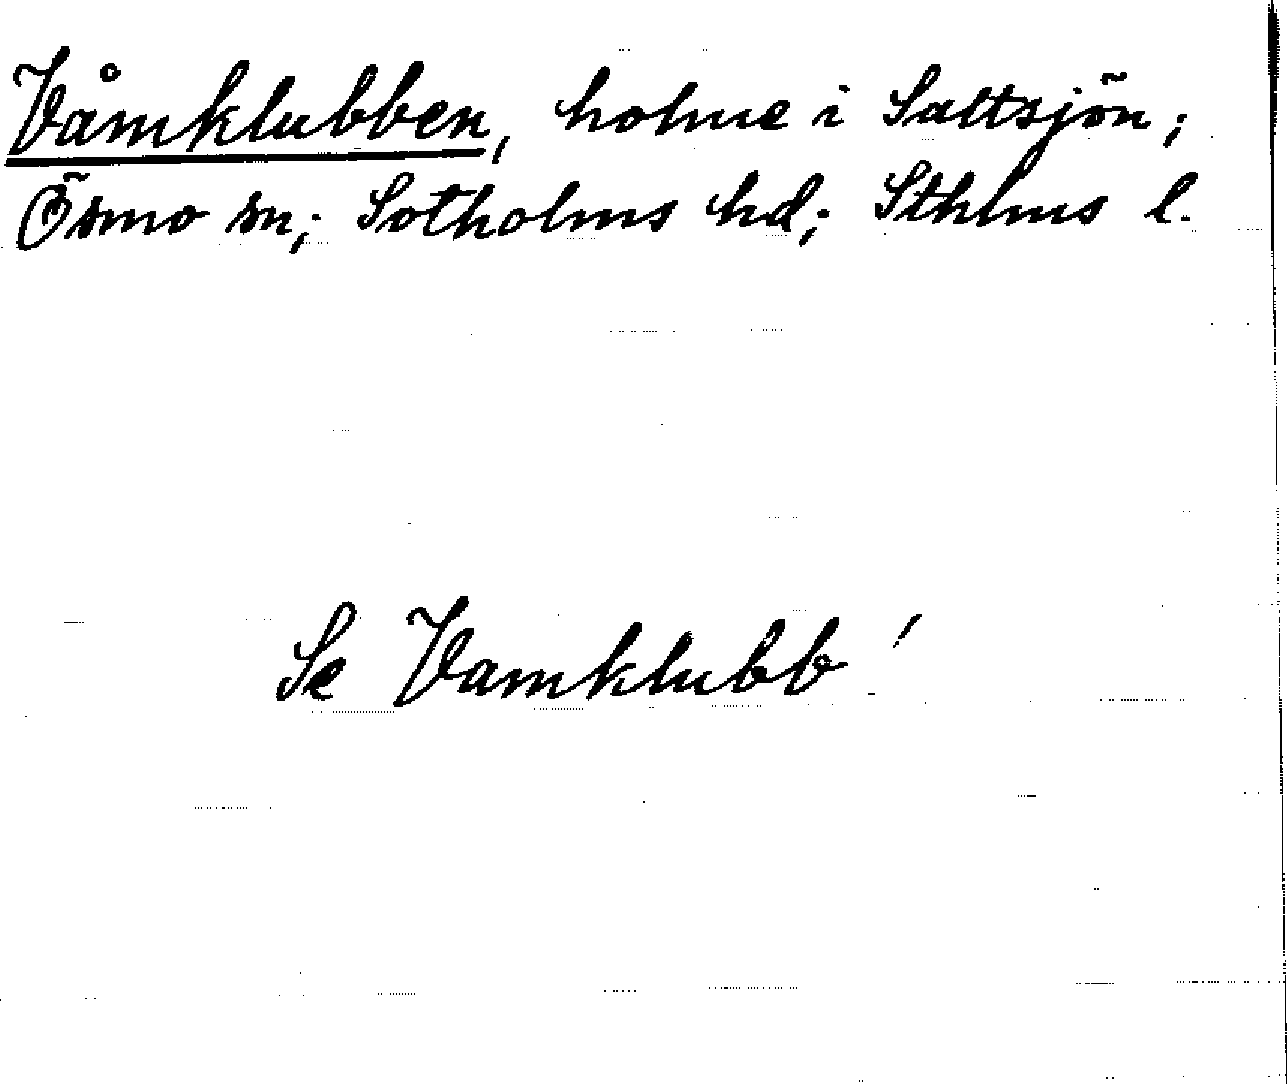 Våmklubben, holme i Saltsjön;
Ösmo sn; Sotholms hd; Sthlms l.
Se Vamklubb!